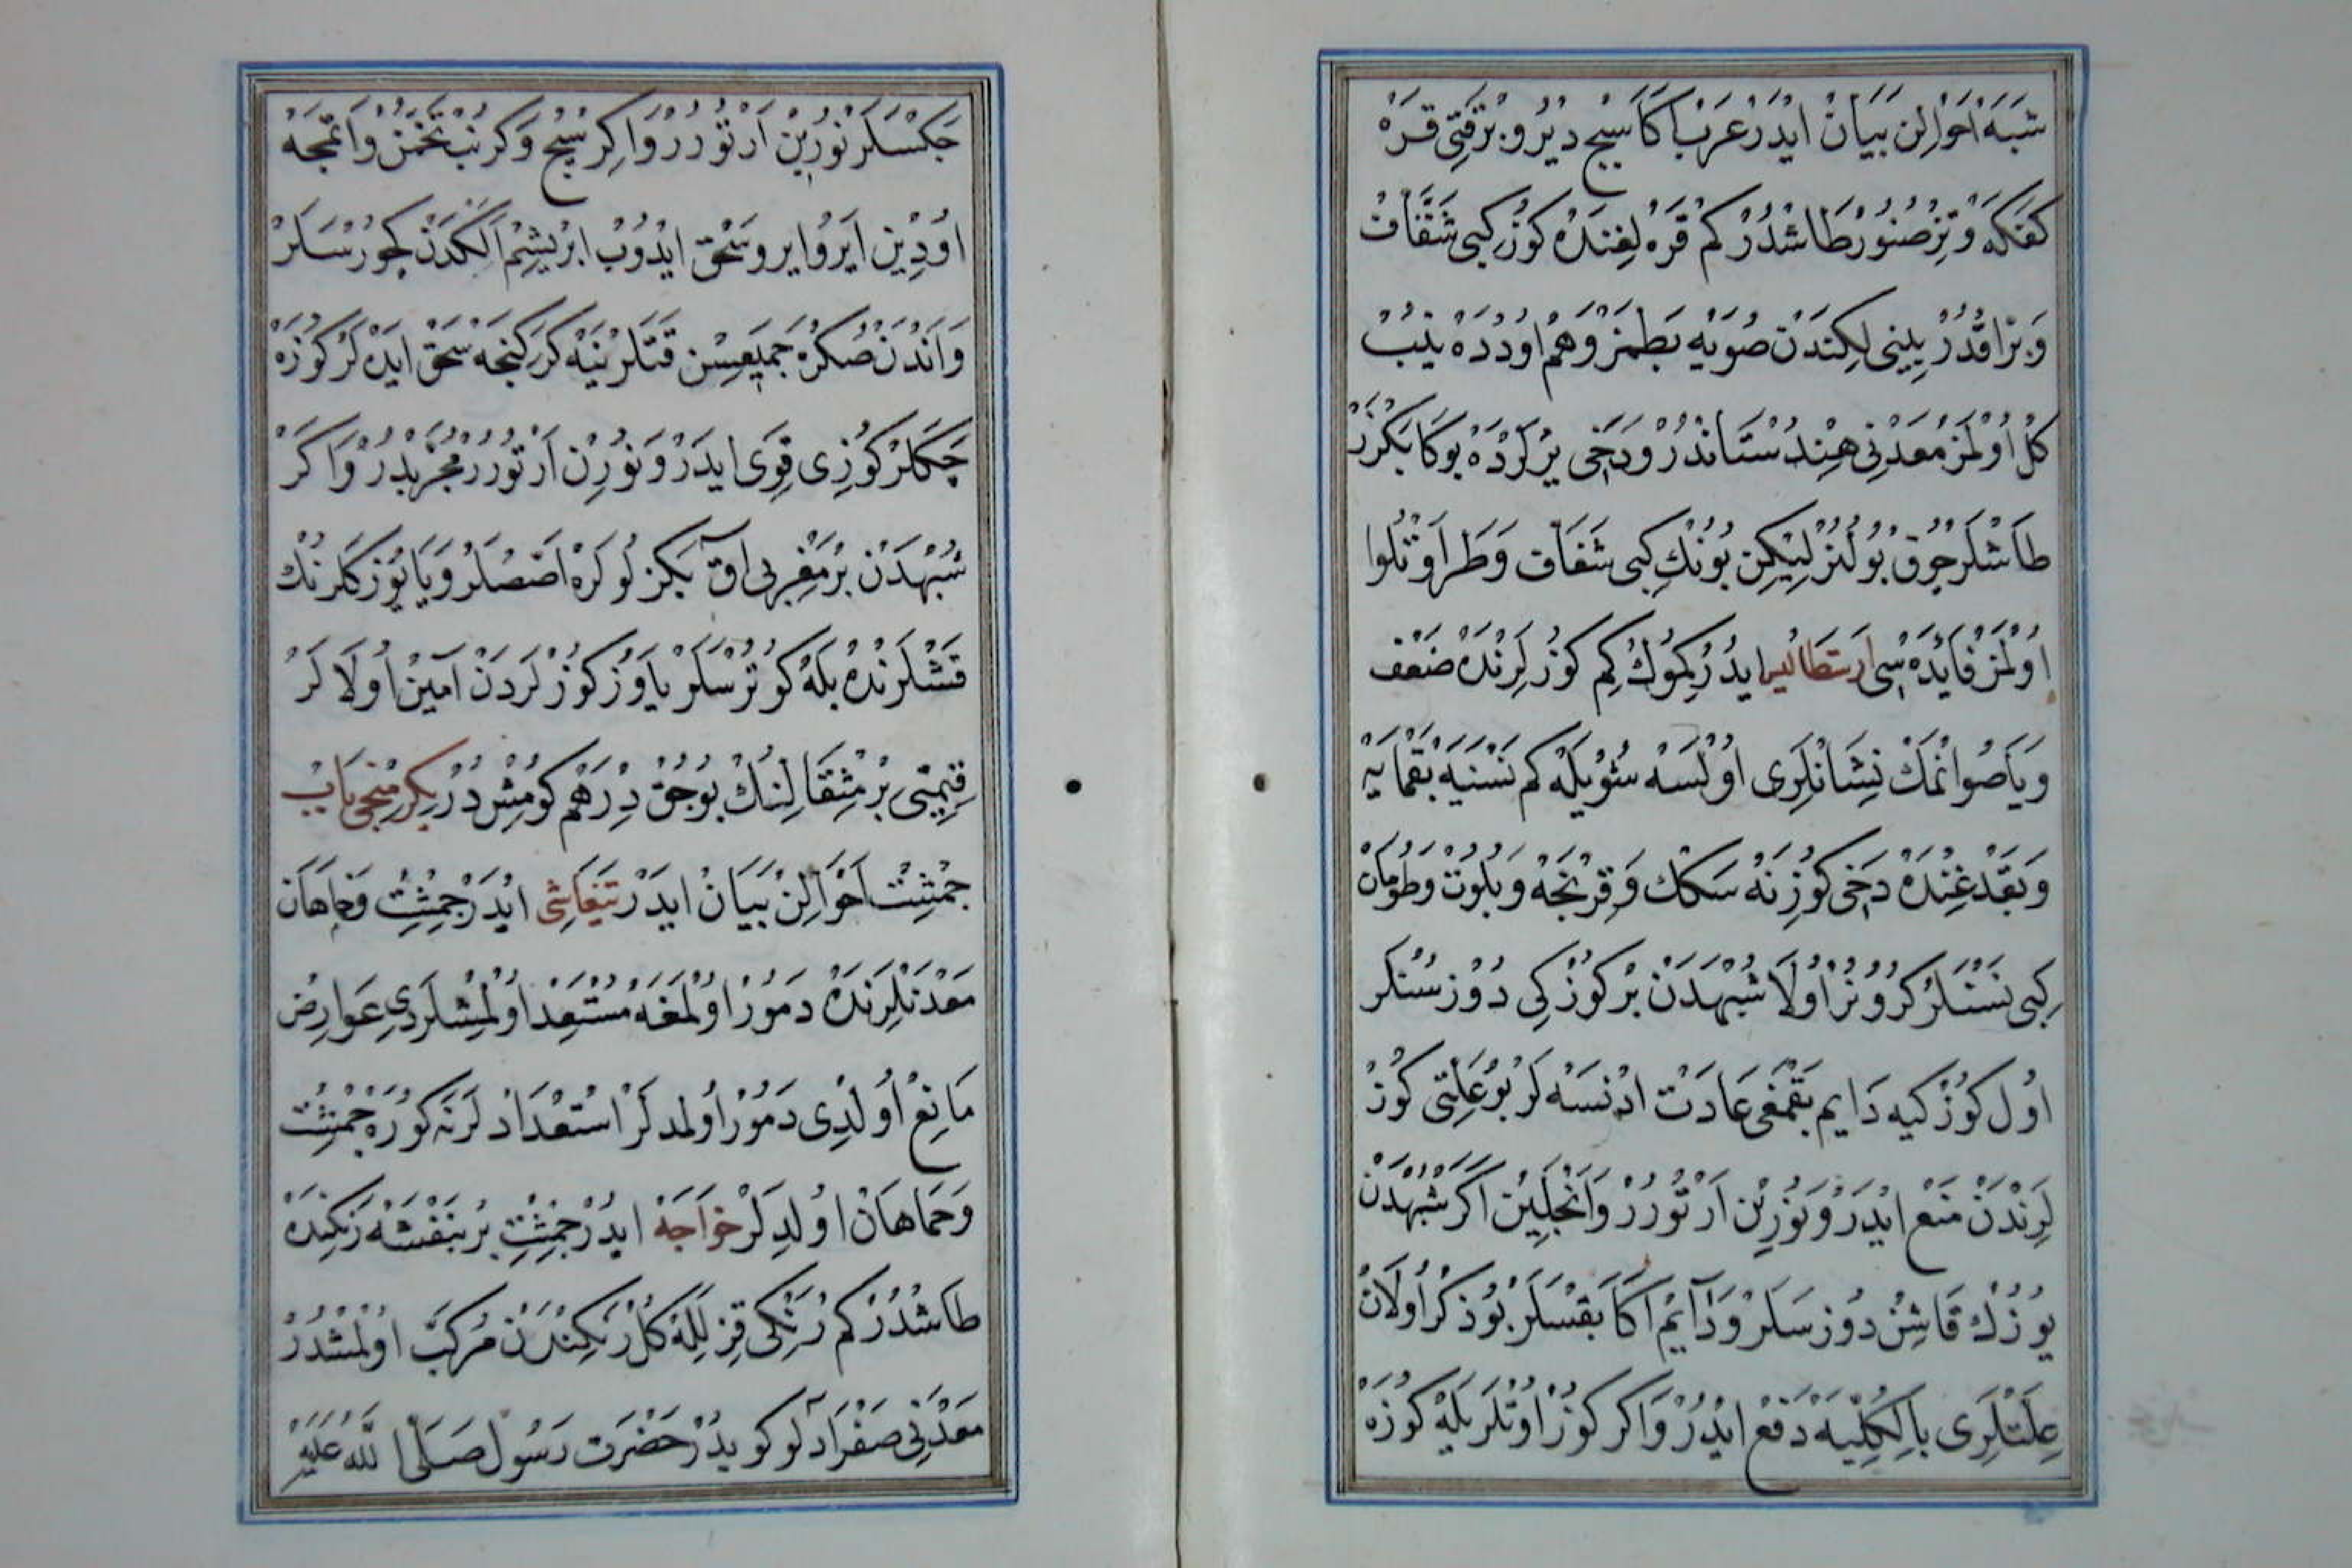 شَبَهْ اَحْوَالِن بَيَانْ ايْدَرْ عَرَبْ اَكَا سَبَج ديْرُو بُرْقَتِى قَرَهْ
كَفَكَهْ وَتِزْ صِنُورْ طَاشْدُرْ كِمْ قَرَهْ لِغِنْدَهْ كُوزْ كِبِى شَفَّافْ
وَبَرَّاقْدُرْ يِينِى لِكِنْدَنْ صُويَهْ بَطْمَزْ وَهَمْ اُودْدَهْ يَنُبْ
كُلْ اُولْمَزْ مَعْدَنِى هِنْدُسْتَانْدُرْ وَدَخِى يِرْلَرْدَهْ بوُكَا بَكْزَرْ
طَاشْلَرْ چُوقْ بُولُنُرْ لِيْكِنْ بُونُكْ كِبِى شَفَّافْ وَطَرَاوَتْلُوا
اُولْمَزْ فَايْدَه سِى اَرَسْطَالِيسْ ايْدُرْ كِمُوكْ كِمْ كُوزْلَرِنْدَهْ ضَعْف
وَيَا صُوانْمَكْ نِشَانْلَرِى اُولْسَهْ شُويْلَهْ كِمْ نَسْنَيَه بَقْمَايَهْ
وَبَقْدُغِنْدَهْ دَخِى كُوزِنَهْ سَكَكْ وَقَرِنْجَهْ وَبُلُوتْ وَطُومَانْ
كِبِى نَسْنَلَرْ كُرُونُرْ اُولَا شَبَهْدَنْ بِرْ كُوزْكِى دُوزْسُنْلَر
اُولْ كُوزْكيَه دَايِم بَقْمَغِى عَادَتْ ادِنْسَهْ لَرْ بُو عِلَّتِى كُوزْ
لَرِنْدَنْ مَنْع ايْدَرْ وَنُورِينْ اَرْتُورُرْ وَانْجِلَيِنْ اَكَرْ شَبَهْدَنْ
يُوزُكْ قَاشِنْ دُوزْسَلَرْ وَدَآيِمْ اَكَا بَقْسَلَرْ بُو ذِكْرْ اُولَانْ
عِلَّتْلَرِى بِالْكُلِّيَهْ دَفْع ايْدُرْ وَاكَرْ كُوزْ اُوتْلَرِ يلَهْ كُوزَهْ
چَكْسَلَرْ نُورِينْ اَرْتُورُرْ وَاكِرْ سَبَج وَكَرْنُبْ تُخْمِنْ وَاَغْجَهْ
اُودِينْ اَيْرُو اَيْرُو سَحْق ايْدُوبْ ابْرِيشِمْ اَلَكْدَنْ كَچُورْسَلَرْ
وَانْدَنْ صُكْرَهْ جَمِيعِسِن قَتَّلَرْ يِنَهْ كَرَكِنْجَهْ سَحْق ايدَهْ لَرْ كُوزَهْ
چَكَلَرْ كُوزِى قِوِى ايدَرْ وَنُورِنْ اَرْتُورُرْ مُجَرَّبْدُرْ وَاكَرْ
شَبَهْدَنْ بِرْ مَغْرِبِى اَقْ بَكِزْلُولَرَهْ اَصْصَلَرْ وَيَا يُوزُكْلَرِنُكْ
قَشْلَرِنْدَهْ بِلَهْ كُوتُرْسَلَرْ يَاوُزْ كُوزْلَرْدَنْ اَمِينْ اُولَالَرْ
قِيمَتِى بِرْ مِثْقَالِنُكْ بُوجُقْ دِرْهَمْ كُومُشْ دُرْ يِكِرْمِنْجِى بَابْ
جَمِشِتْ اَحْوَالِنْ بَيَانْ ايدَرْ تِيفَاشِى ايْدَرْ جَمِشِتْ وَخَمَاهَانْ
مَعْدَنْلَرِنْدَهْ دَمُورْ اُولْمَغَهْ مُسْتَعِدْ اُولْمِشْلَرْدِى عَوَارِضْ
مَانِعْ اُولْدِى دَمُورْ اُولْمَدِلَرْ اسْتِعْدَادْلَرِنَه كُورَهْ جَمِشِتْ
وَخَمَاهَانْ اُولدِلَرْ خَوَاجَهْ ايدُرْ جَمِشِتْ بِرْ بَنَفْشَهْ رَنْكِنْدَهْ
طَاشْدُرْ كِمْ رَنْكِى قِزِلْلَهْ كُلْ رَنْكِنْدَنْ مُرَكَّبْ اُولْمِشْدُرْ
مَعْدَنِى صَفْرَادْلُو كُويدُرْ حَضْرَتْ رَسُولْ صَلَّى اللّٰهُ عَلَيْهِ